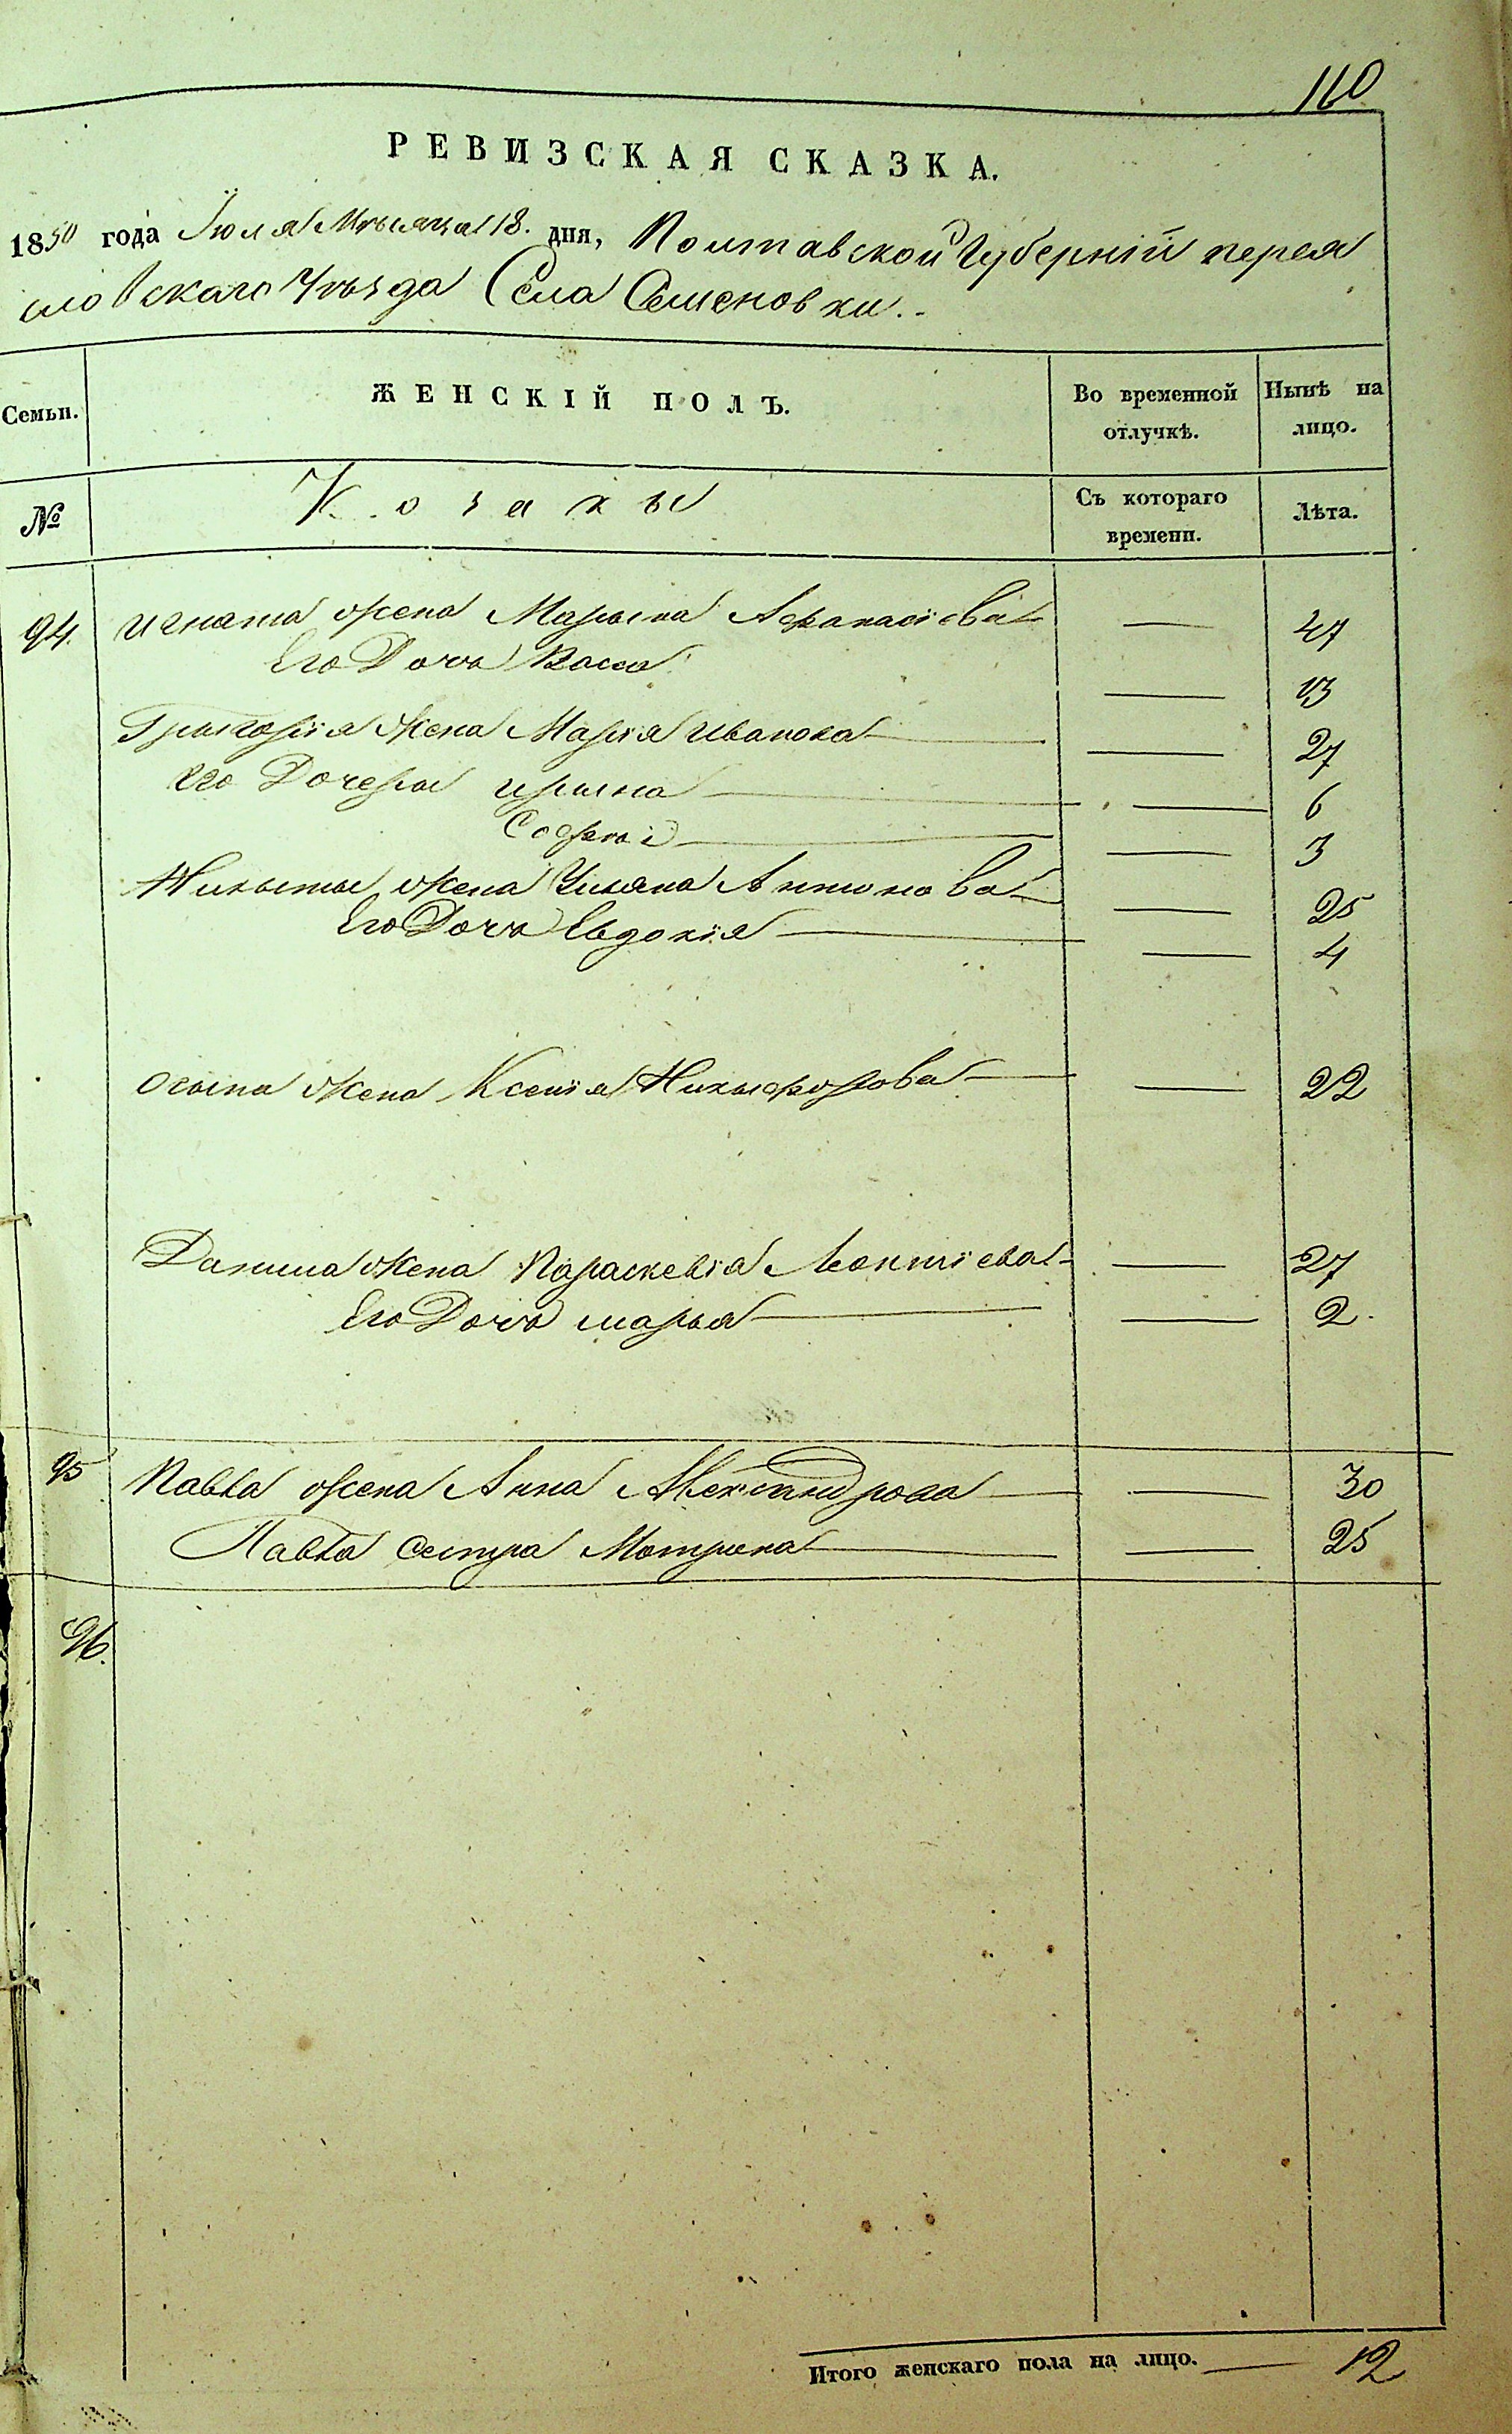 110
РЕВИЗСКАЯ СКАЗКА.
1850 года Іюля Мѣсяца 18. дня, Полтавской Губерніи перея
словскаго Уѣзда Села Семеновки.
Семьи. ЖЕНСКІЙ ПОЛЪ. Во временной отлучкѣ. Нынѣ на лицо.
№ Козакы Съ котораго времени. Лѣта.
94. Игната жена Марына Афанасіева — 47
Его Дочь Васса — 13
Грыгорія жена Марія Иванова — 27
Его Дочеры Ирына — 6
Софья — 3
Никыты жена Уляна Антонова — 25
Его Дочь Евдокія — 4
Осыпа жена Ксенія Никыфорова — 22
Данила жена Параскевія Леонтіева — 27
Его Дочь марья — 2.
95 Павла жена Анна Александрова — 30
Павла сестра Мотрина — 25
96.
Итого женскаго пола на лицо. — 12